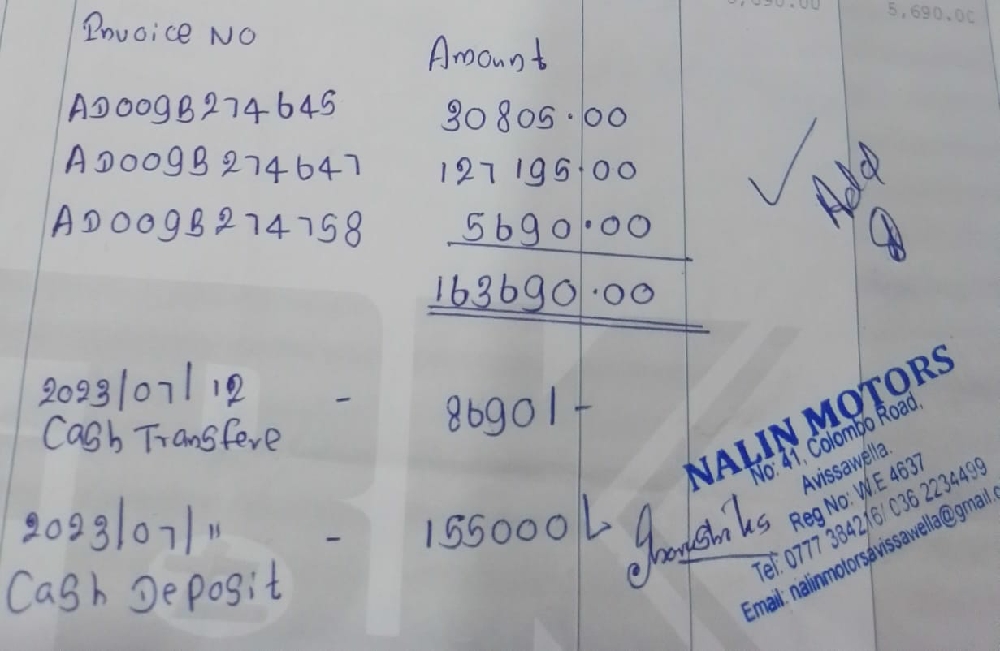 5,690.00
Invoice No Amount
AD009B274645 30805.00
AD009B274647 127195.00
AD009B274758 5690.00
163690.00
2023/07/12 - 8690/-
Cash Transfere
2023/07/" - 155000/-
Cash Deposit
NALIN MOTORS
No: 41, Colombo Road,
Avissawella.
Reg No: W.E 4637
Tel: 0777 384216/ 036 2234499
Email: nalinmotorsavissawella@gmail.c